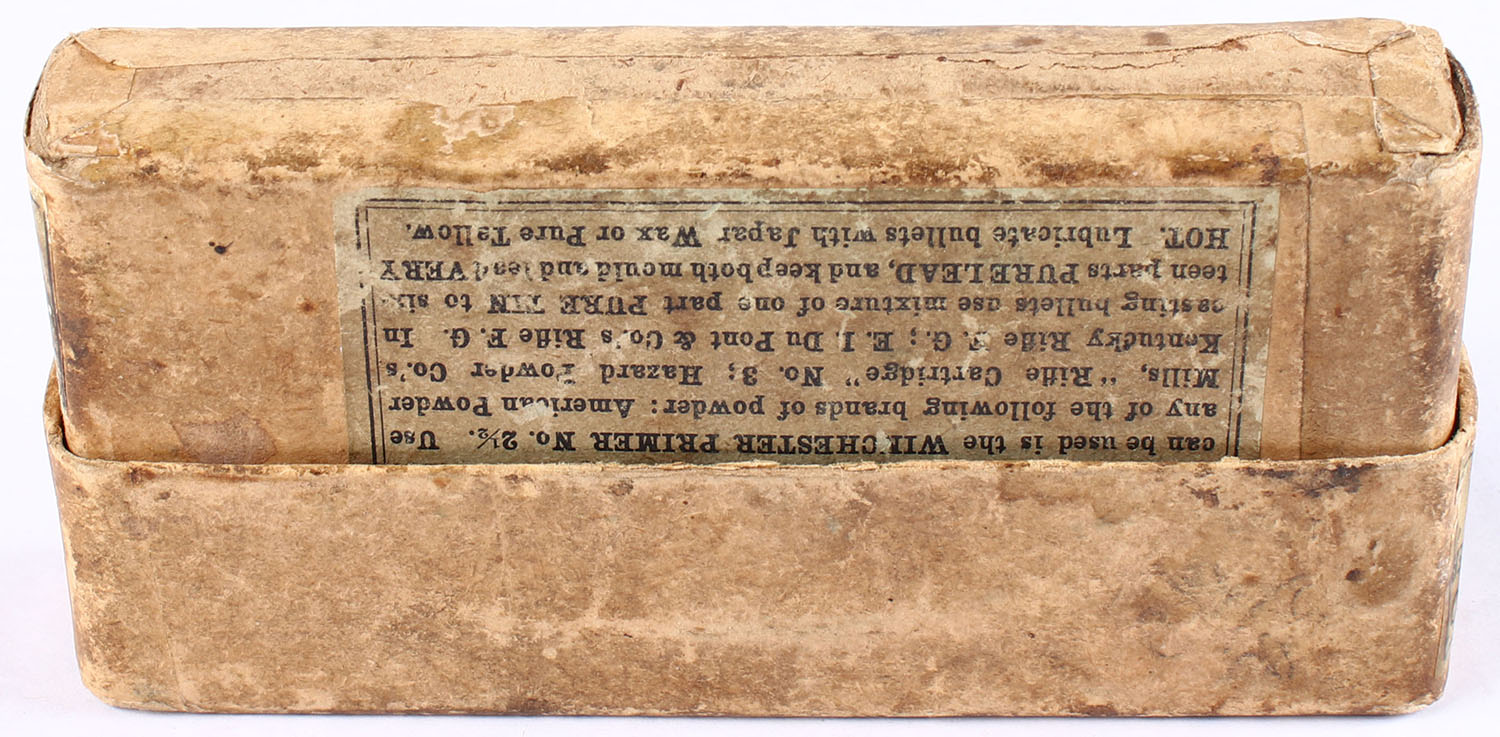 can be used is the WINCHESTER PRIMER No. 2½. Use
any of the following brands of powder: American Powder
Mills, "Rifle Cartridge" No. 3; Hazard Powder Co.'s
Kentucky Rifle F. G.; E. I. Du Pont & Co.'s Rifle F. G. In
casting bullets use mixture of one part PURE TIN to six-
teen parts PURE LEAD, and keep both mould and lead VERY
HOT. Lubricate bullets with Japan Wax or Pure Tallow.